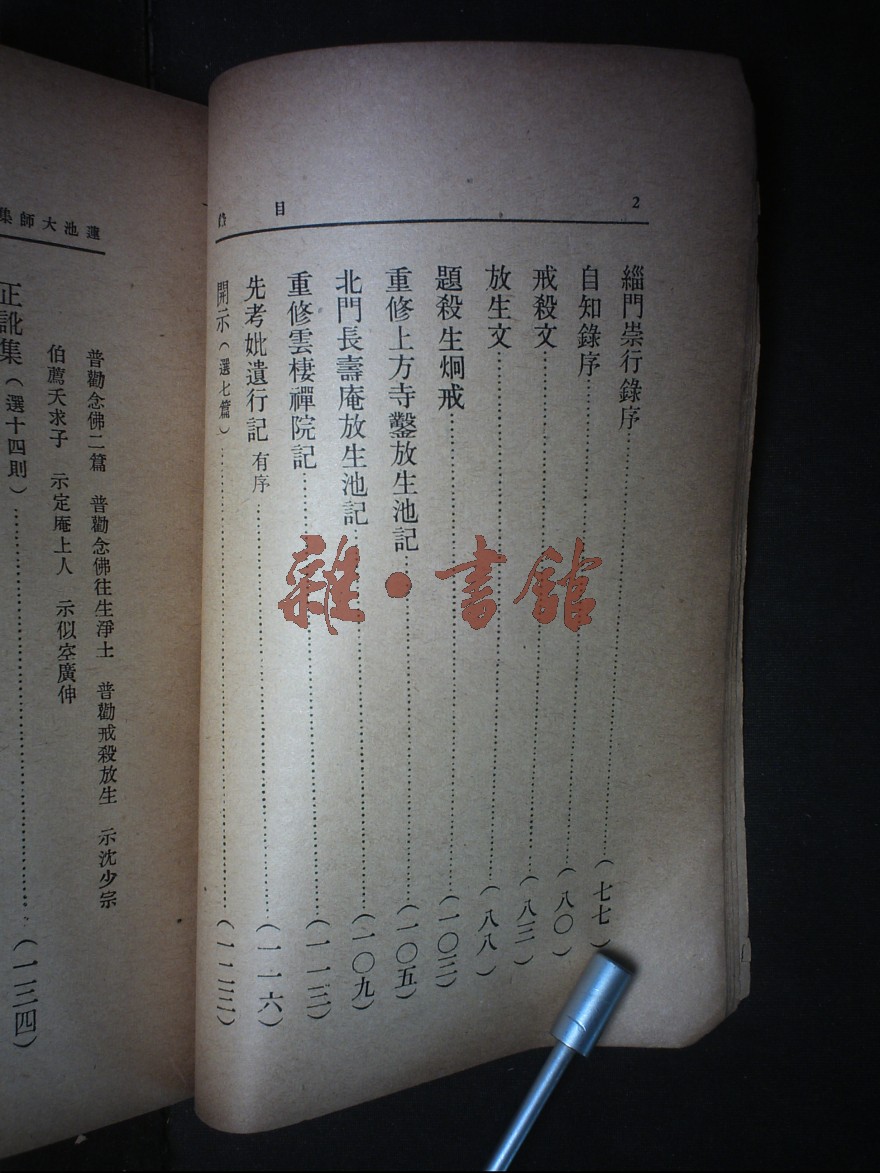 2 目
緇門崇行錄序……（七七）
自知錄序……（八〇）
戒殺文……（八三）
放生文……（八八）
題殺生炯戒……（一〇三）
重修上方寺鑿放生池記……（一〇五）
北門長壽庵放生池記……（一〇九）
重修雲棲禪院記……（一一三）
先考妣遺行記 有序……（一一六）
開示（選七篇）……（一二三）
蓮池大師集
普勸念佛二篇 普勸念佛往生淨土 普勸戒殺放生 示沈少宗
伯薦夭求子 示定庵上人 示似空廣伸
正訛集（選十四則）……（一三四）
雜·書館